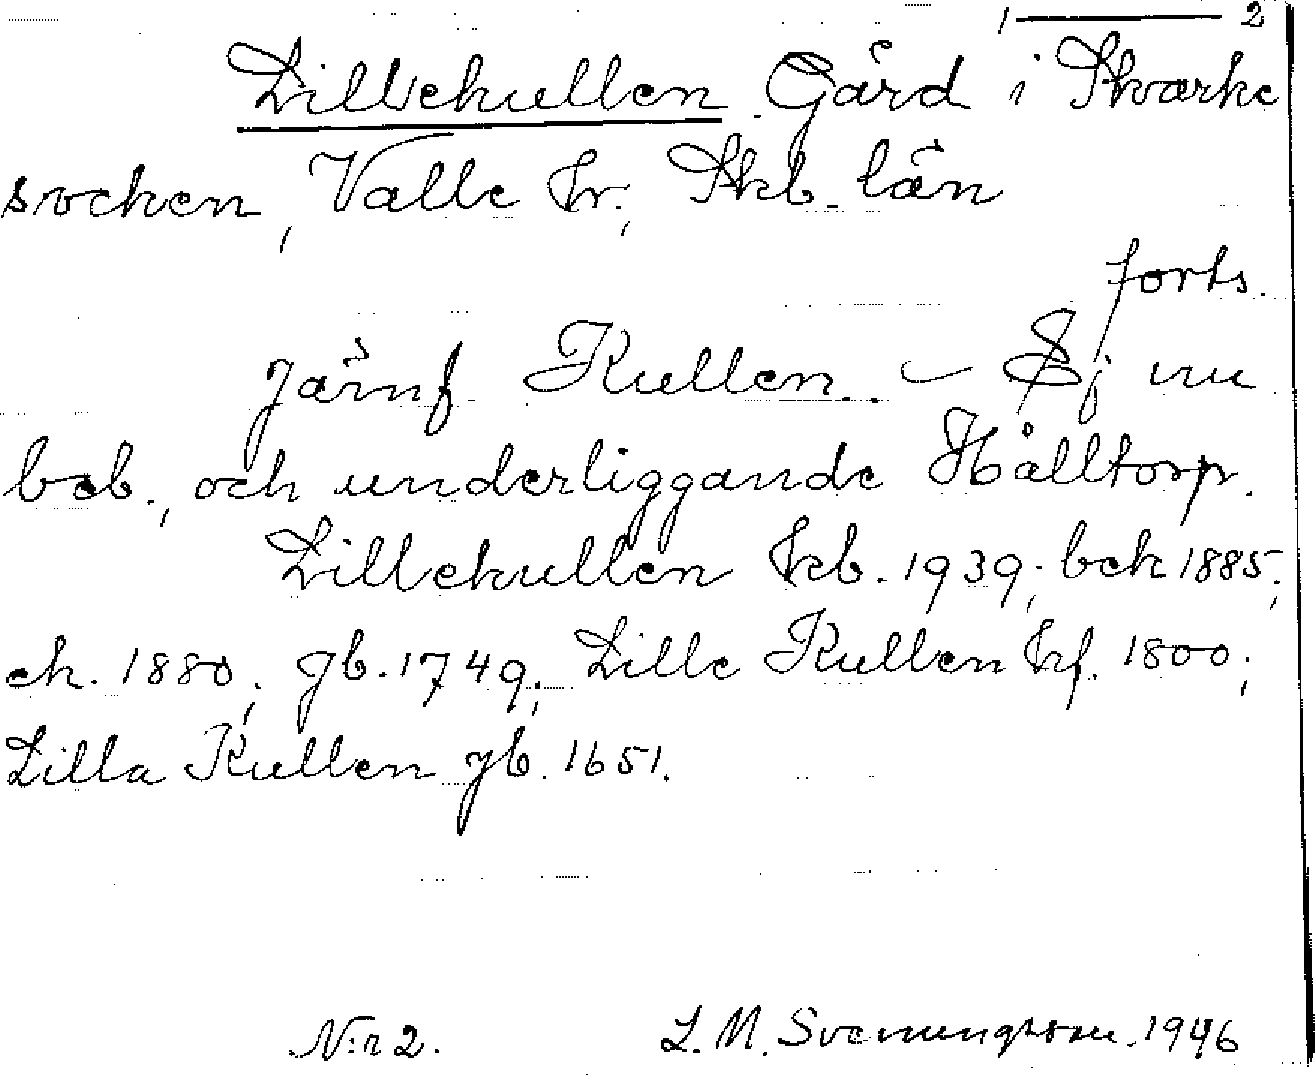 1 — 2
Lillekullen Gård i Skärke
socken, Valle hr; Skb. län
forts.
jämf Kullen. – Ej nu
beb., och underliggande Hålltorp.
Lillekullen kb. 1939; bek 1885;
ek. 1880; gb. 1749; Lille Kullen hf. 1800;
Lilla Kullen jb. 1651.
N:r 2. L. M. Svenungsson. 1946